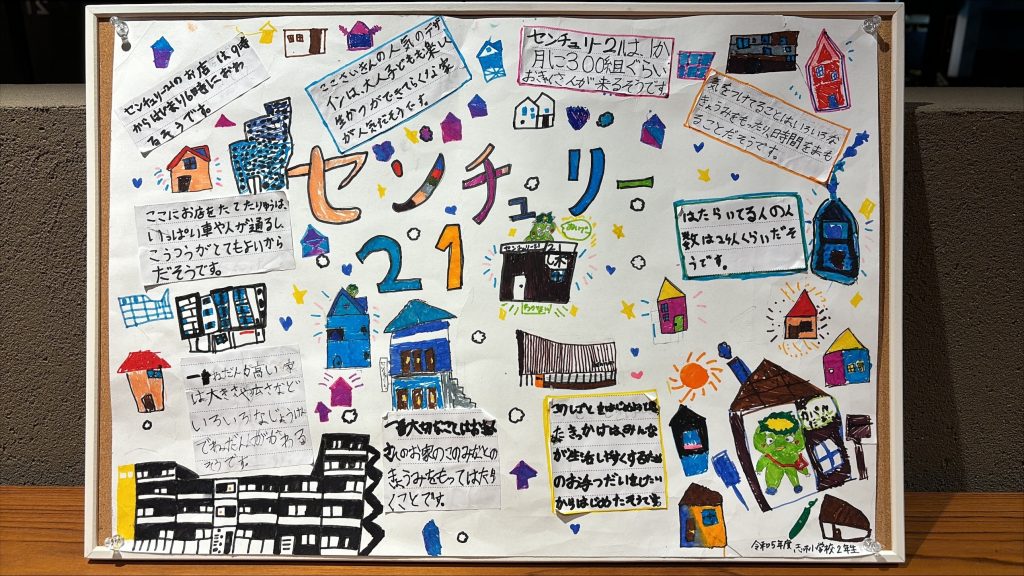 センチュリー21のお店は9時
からはじまり16時におわ
るそうです。
さいきんの人気のデザ
インは、大人も子どもも楽しく
生かつができてらくな家
が人気だそうです。
センチュリー21は1か
月に300組ぐらい
おきゃくさんが来るそうです。
気をつけてることはいろいろな
きょうみをもったり、時間をまも
ることだそうです。
センチュリー
21
ここにお店をたてたりゆうは、
いっぱい車や人が通るし
こうつうがとてもよいから
だそうです。
センチュリー21
志木
はたらいてる人の人
数は24人くらいだそ
うです。
一番ねだんが高い家
は大きさや広さなど
いろいろなじょうけん
でねだんがかわる
そうです。
一番大切なことはお客
さんのお家のこのみなどの
きょうみをもってはたら
くことです。
このしごとをはじめようと思っ
たきっかけは、みんな
が生活しやすくするため
のお手つだいをしたい
からはじめたそうです。
カパル
令和5年度 志木小学校2年生